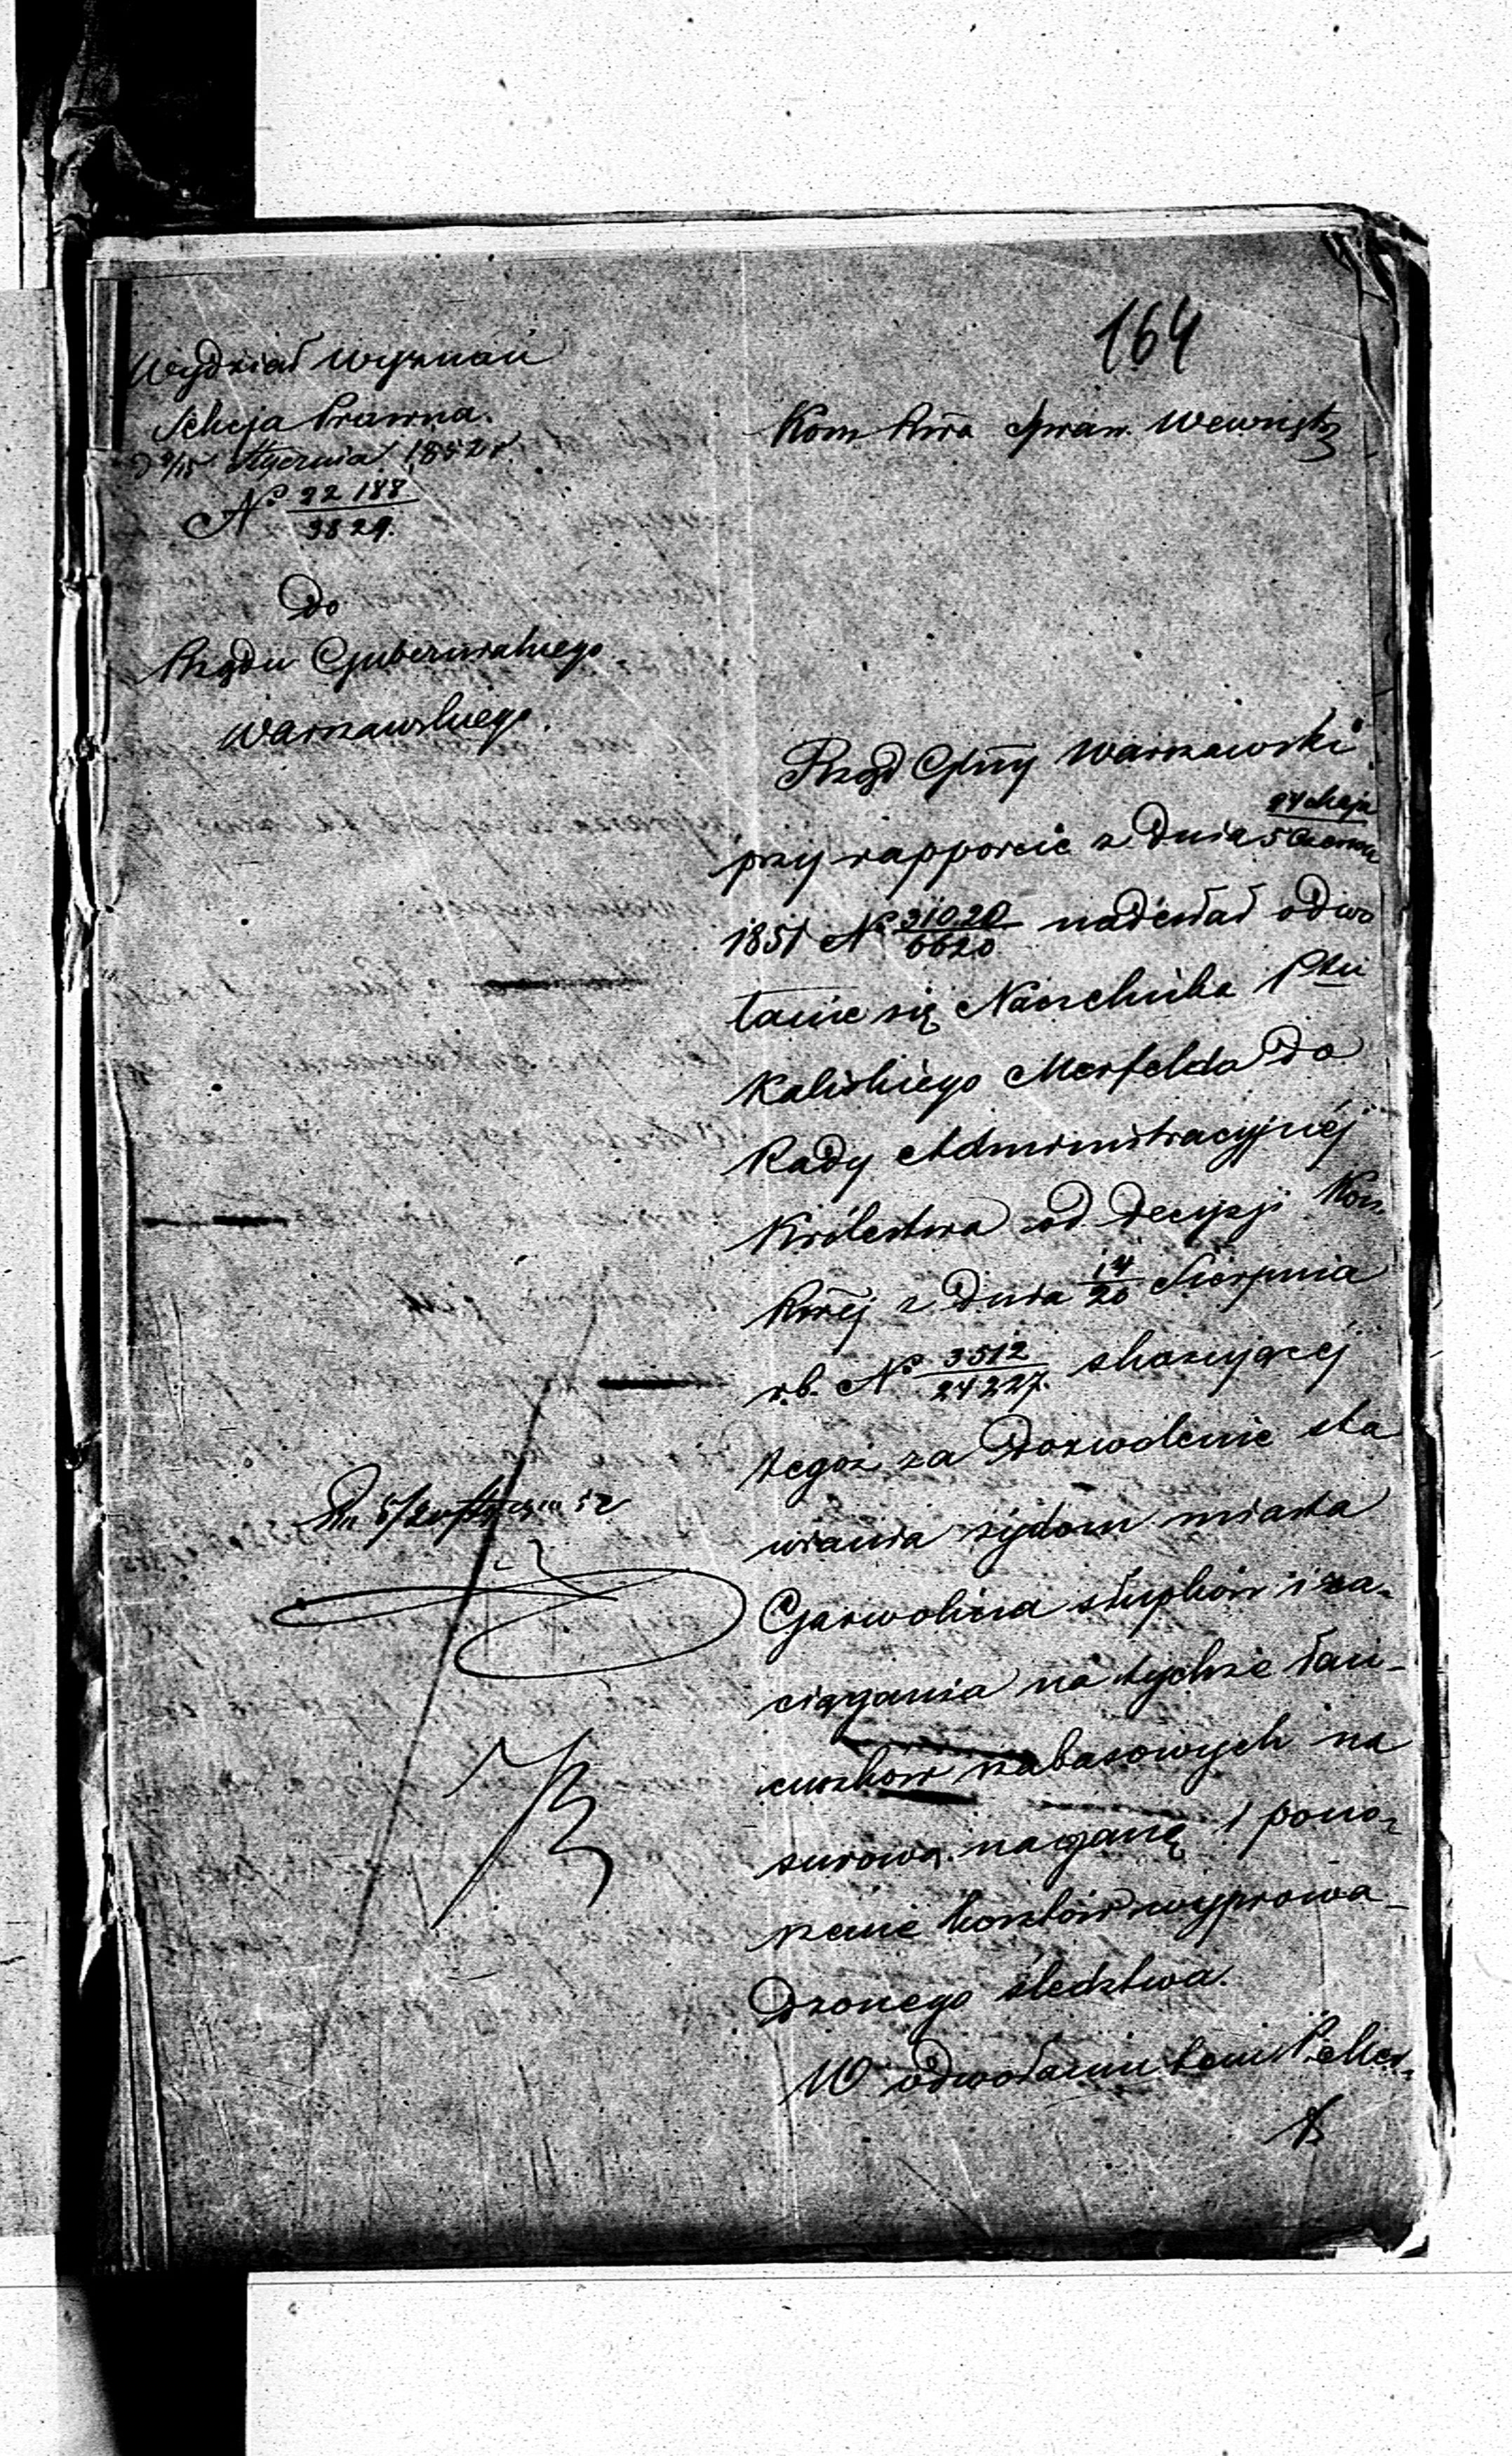 164
Wydział Wyznań
Sekcja Prawna.
d 3/15 Stycznia 1852 r.
No 22188/3829.
Do
Rządu Gubernialnego
Warszawskiego.
Kom Rwa Spraw. Wewnętz
Rząd Glny Warszawski
przy rapporcie z dnia 24 Maja/5 Czerwca
1851 No 31020/6620 nadesłał odwo
łanie się Naczelnika Ptu
Kaliskiego Merfelda do
Rady Administracyjnéj
Królestwa od decyzji Kom
Rwéj z dnia 14/26 Sierpnia
r.b. No 3512/24227. skazującéj
tegoż za dozwolenie sta
wiania żydom miasta
Garwolina słupków i za-
ciągania na tychże łań-
cuszków szabasowych na
surową naganę i pono-
szenie kosztów wyprowa-
dzonego śledztwa.
W odwołaniu tem P. Mer-
Dn 8/20 Stycznia 52